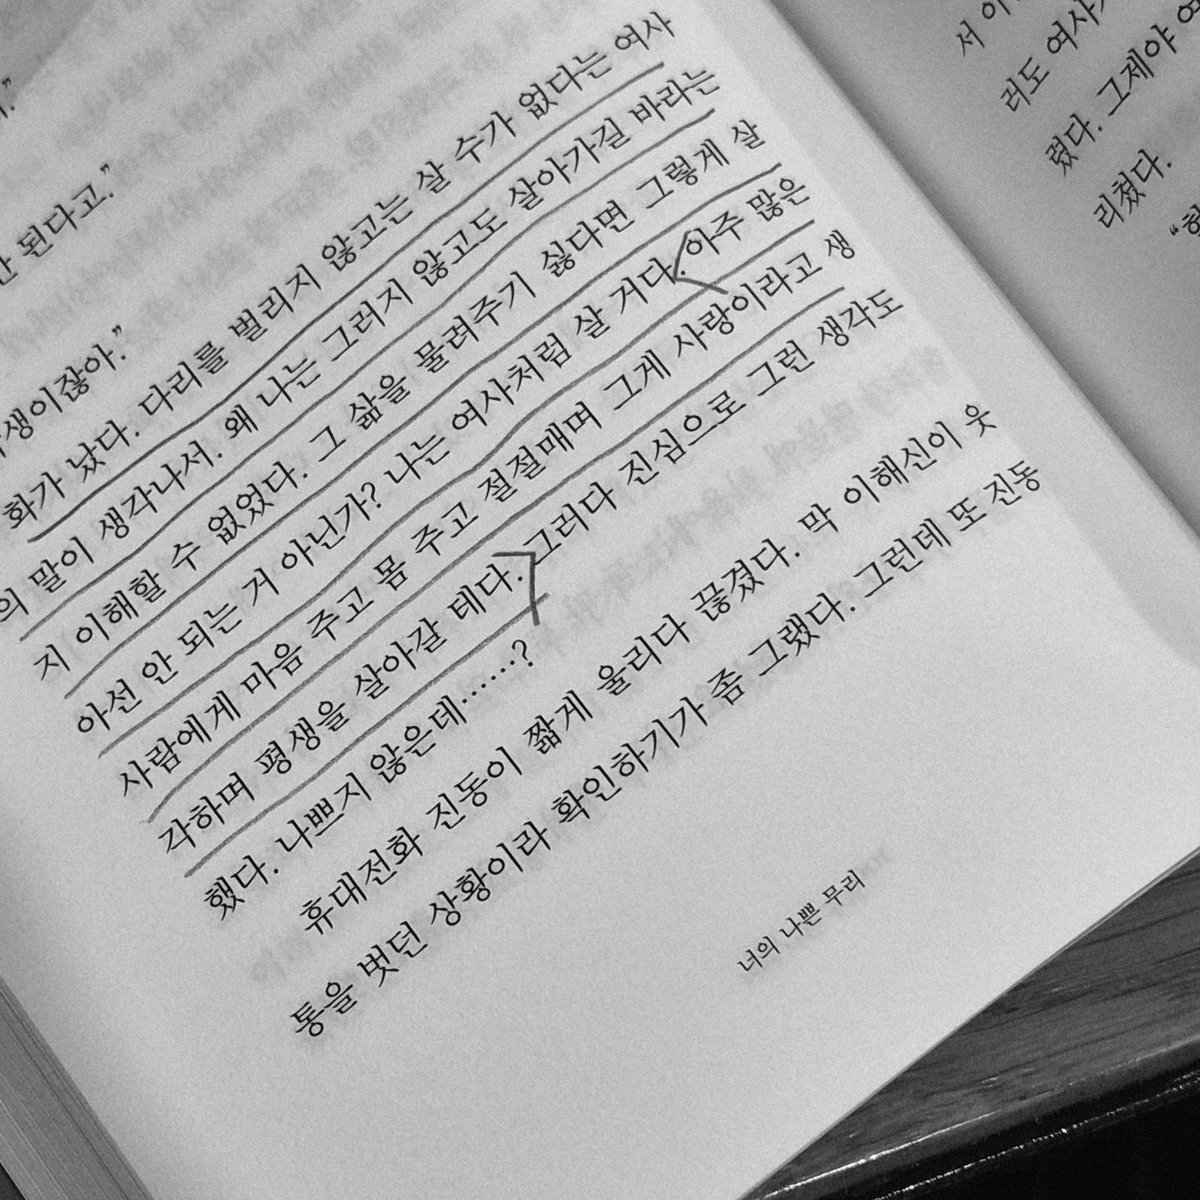 ."
안 된다고."
생이잖아."
화가 났다. 다리를 벌리지 않고는 살 수가 없다는 여사
의 말이 생각나서. 왜 나는 그러지 않고도 살아가길 바라는
지 이해할 수 없었다. 그 삶을 물려주기 싫다면 그렇게 살
아선 안 되는 거 아닌가? 나는 여사처럼 살 거다. 아주 많은
사람에게 마음 주고 몸 주고 절절매며 그게 사랑이라고 생
각하며 평생을 살아갈 테다. 그러다 진심으로 그런 생각도
했다. 나쁘지 않은데……?
휴대전화 진동이 짧게 울리다 끊겼다. 막 이해신이 웃
통을 벗던 상황이라 확인하기가 좀 그랬다. 그런데 또 진동
너의 나쁜 무리
서 이
러도 여사
렸다. 그제야 여
리쳤다.